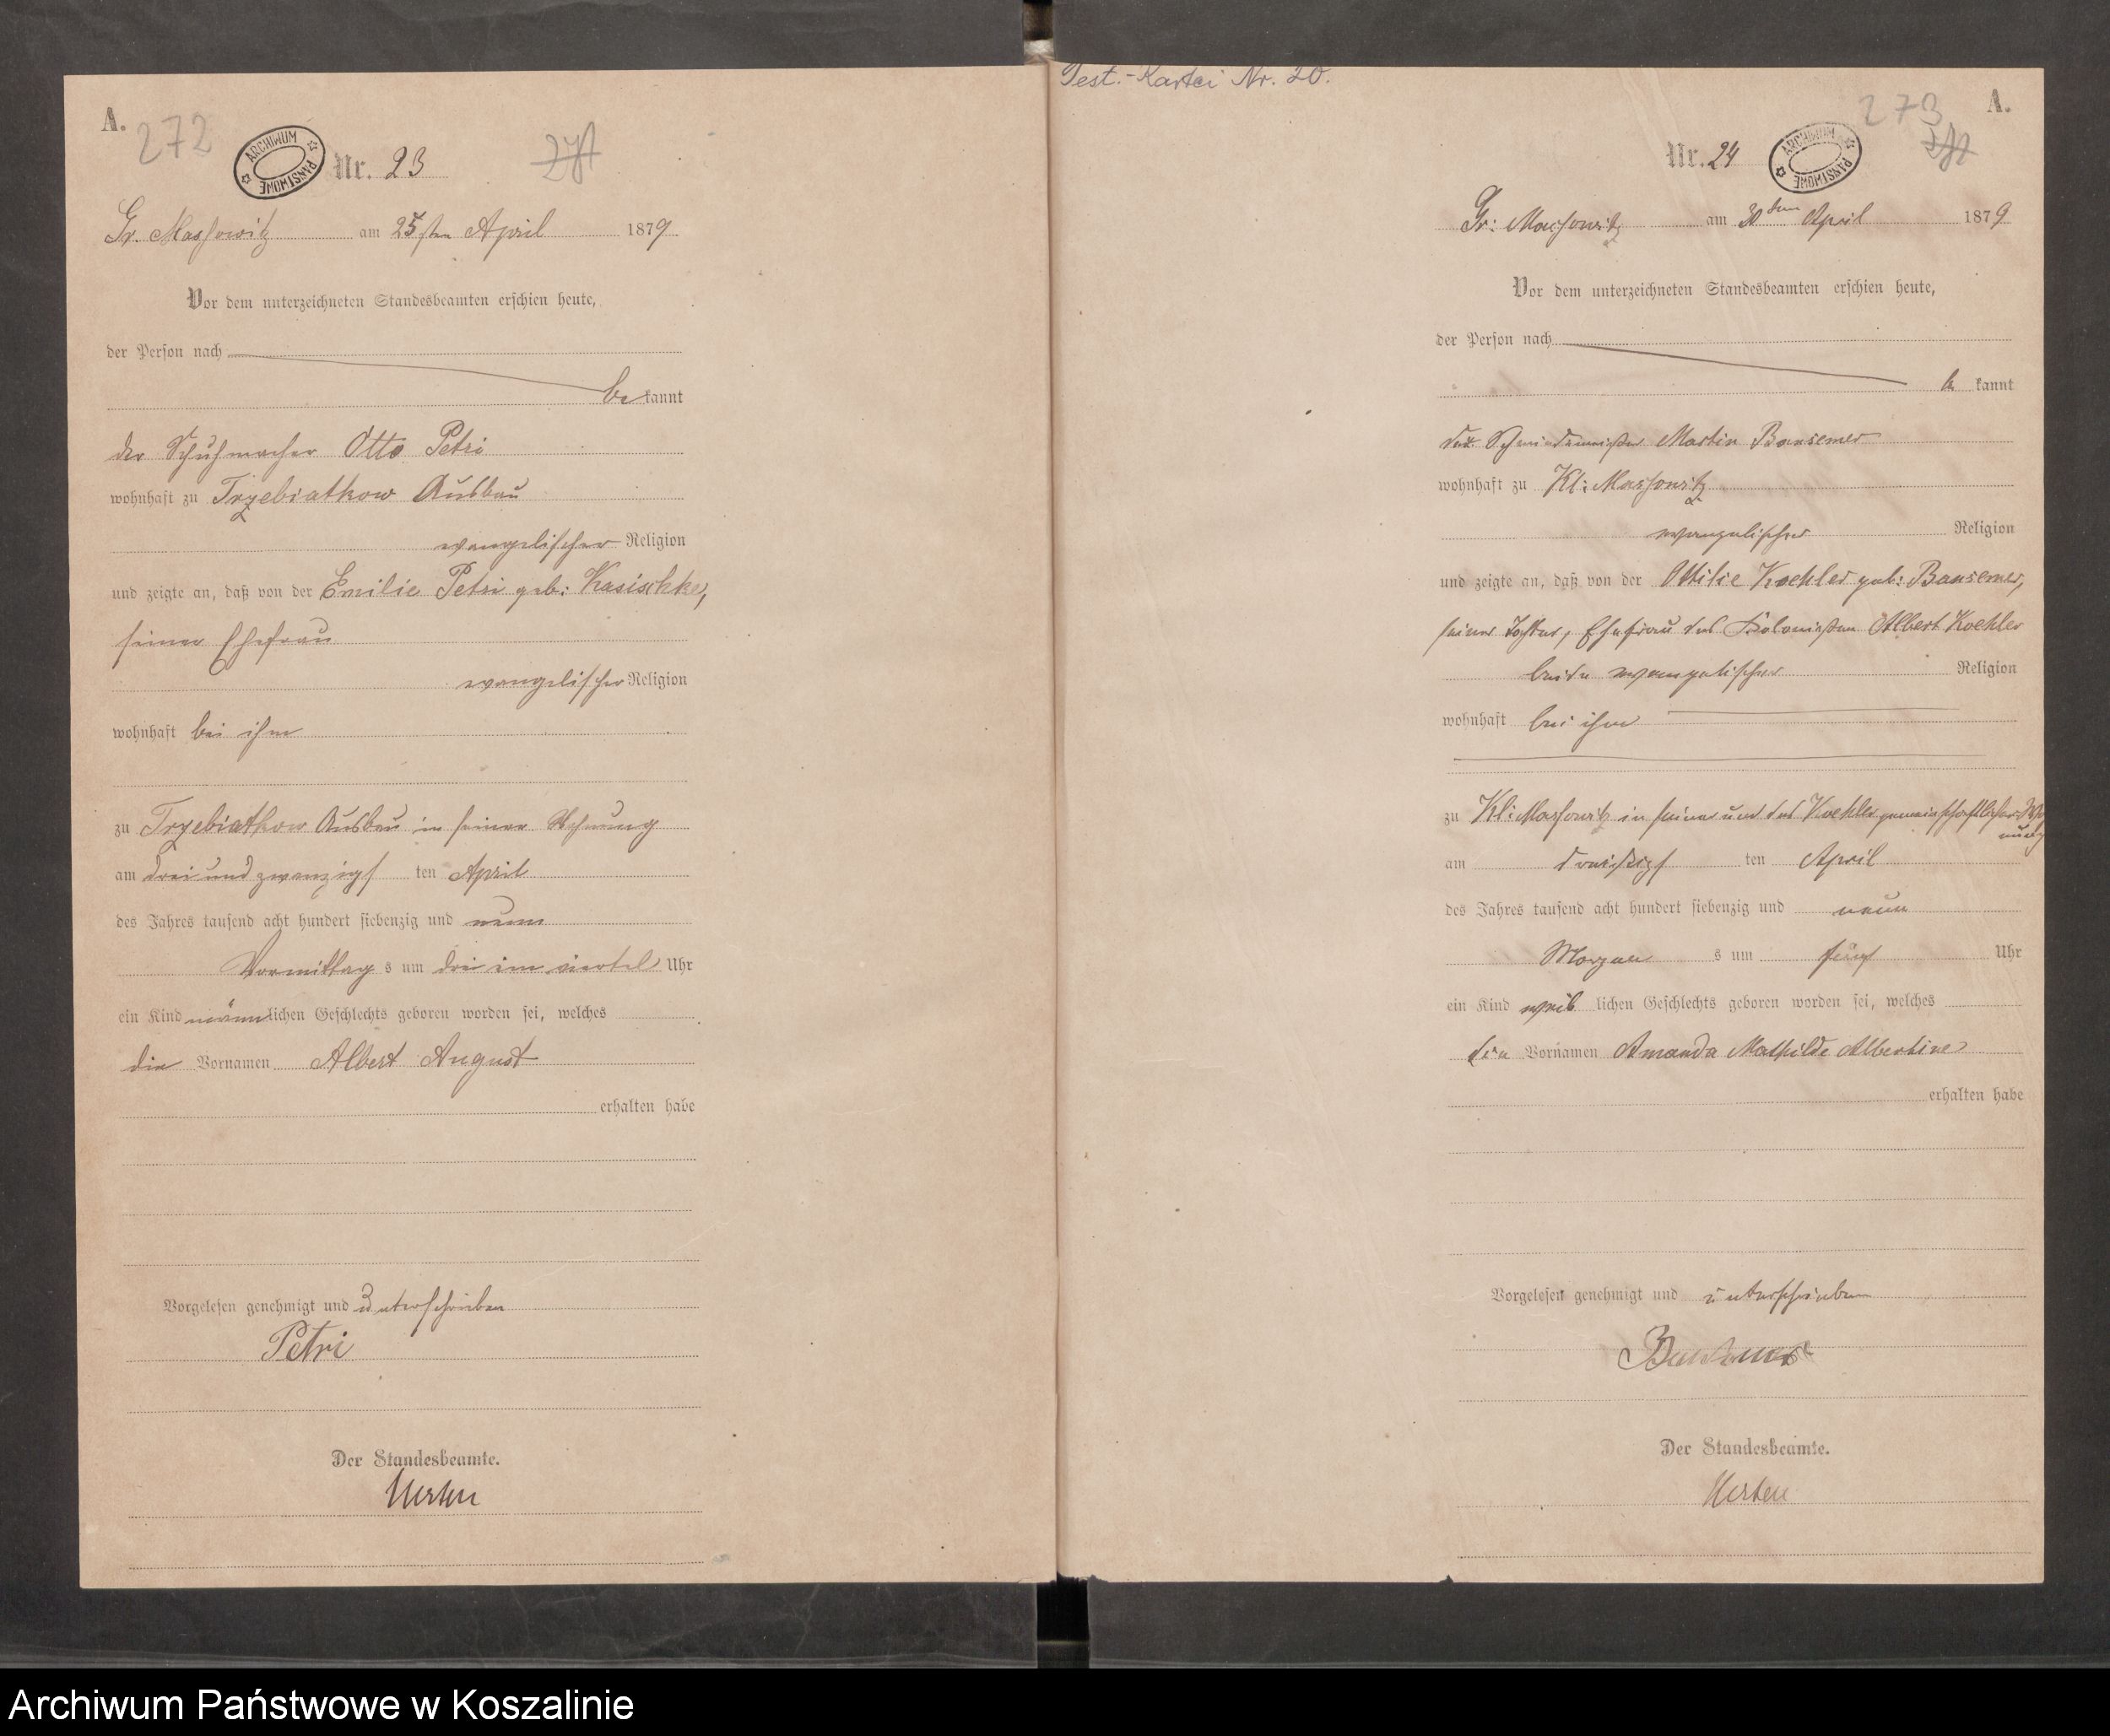 A.
272
271
ARCHIWUM PAŃSTWOWE
Nr. 23
Gr. Massowitz am 25sten April 1879
Vor dem unterzeichneten Standesbeamten erschien heute,
der Person nach
be kannt
der Schuhmacher Otto Petri
wohnhaft zu Trzebiatkow Ausbau
evangelischer Religion
und zeigte an, daß von der Emilie Petri geb: Kasischke,
seiner Ehefrau
evangelischer Religion
wohnhaft bei ihm
zu Trzebiatkow Ausbau in seiner Wohnung
am drei und zwanzigs ten April
des Jahres tausend acht hundert siebenzig und neun
Vormittag s um drei ein viertel Uhr
ein Kind männ lichen Geschlechts geboren worden sei, welches
die Vornamen Albert August
erhalten habe
Vorgelesen genehmigt und unterschrieben
Petri
Der Standesbeamte.
Test.-Kartei Nr. 20.
273
A.
272
Nr. 24
ARCHIWUM PAŃSTWOWE
Gr: Massowitz am 30ten April 1879
Vor dem unterzeichneten Standesbeamten erschien heute,
der Person nach
be kannt
der Schmiedemeister Martin Bansemer
wohnhaft zu Kl: Massowitz
evangelischer Religion
und zeigte an, daß von der Ottilie Koehler geb: Bansemer,
seiner Tochter, Ehefrau des Kolonisten Albert Koehler
beide evangelischer Religion
wohnhaft bei ihm
zu Kl: Massowitz in seiner und des Koehler gemeinschaftlicher Woh
nung
am dreißigs ten April
des Jahres tausend acht hundert siebenzig und neun
Morgen s um fünf Uhr
ein Kind weib lichen Geschlechts geboren worden sei, welches
die Vornamen Amanda Mathilde Albertine
erhalten habe
Vorgelesen genehmigt und unterschrieben
Bansemer
Der Standesbeamte.
Archiwum Państwowe w Koszalinie